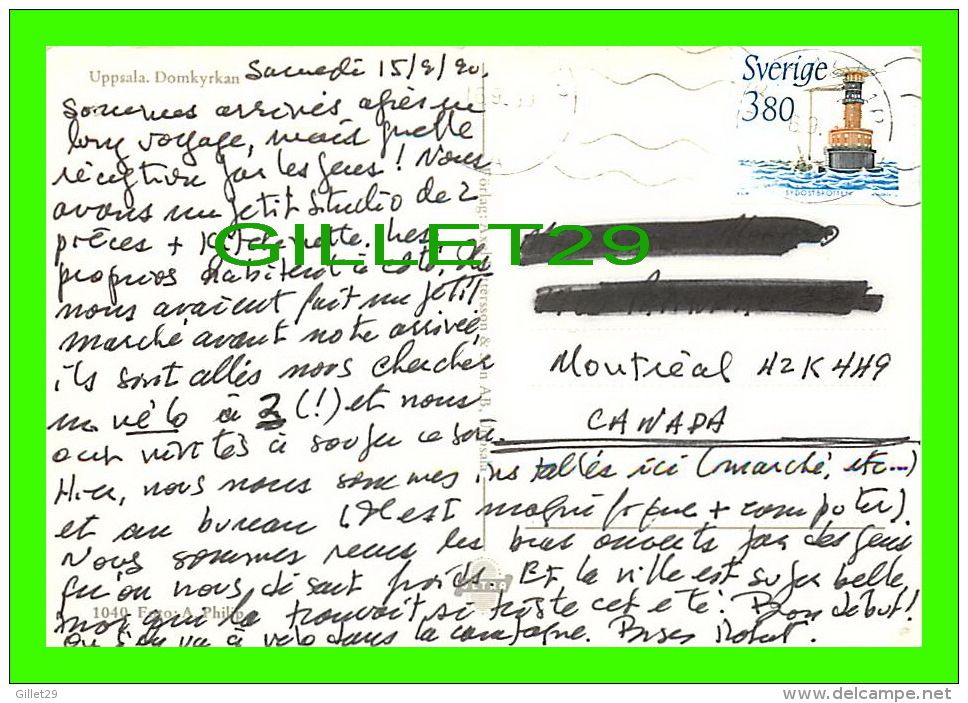 Uppsala. Domkyrkan
Samedi 15/9/90.
Sommes arrivés après un
long voyage, mais quelle
réception par les gens! Nous
avons un petit studio de 2
pièces + kitchenette. Les
proprios habitent à côté, ils
nous avaient fait un petit
marché avant notre arrivée,
ils sont allés nous chercher
un vélo à 2 (!) et nous
ont invités à souper ce soir.
Hier, nous nous sommes installés ici (marché, etc...)
et au bureau (Il est magnifique + computer).
Nous sommes reçus les bras ouverts par des gens
qu'on nous disait froids. Et la ville est super belle,
moi qui la trouvait si triste cet été! Bon début!
On s'en va à vélo dans la campagne. Bises
Sverige
380
SYDOSTBROTTEN
GILLET29
Montréal H2K 4H9
CANADA
ULTRA
1040 Foto: A. Philip
Gillet29
www.delcampe.net